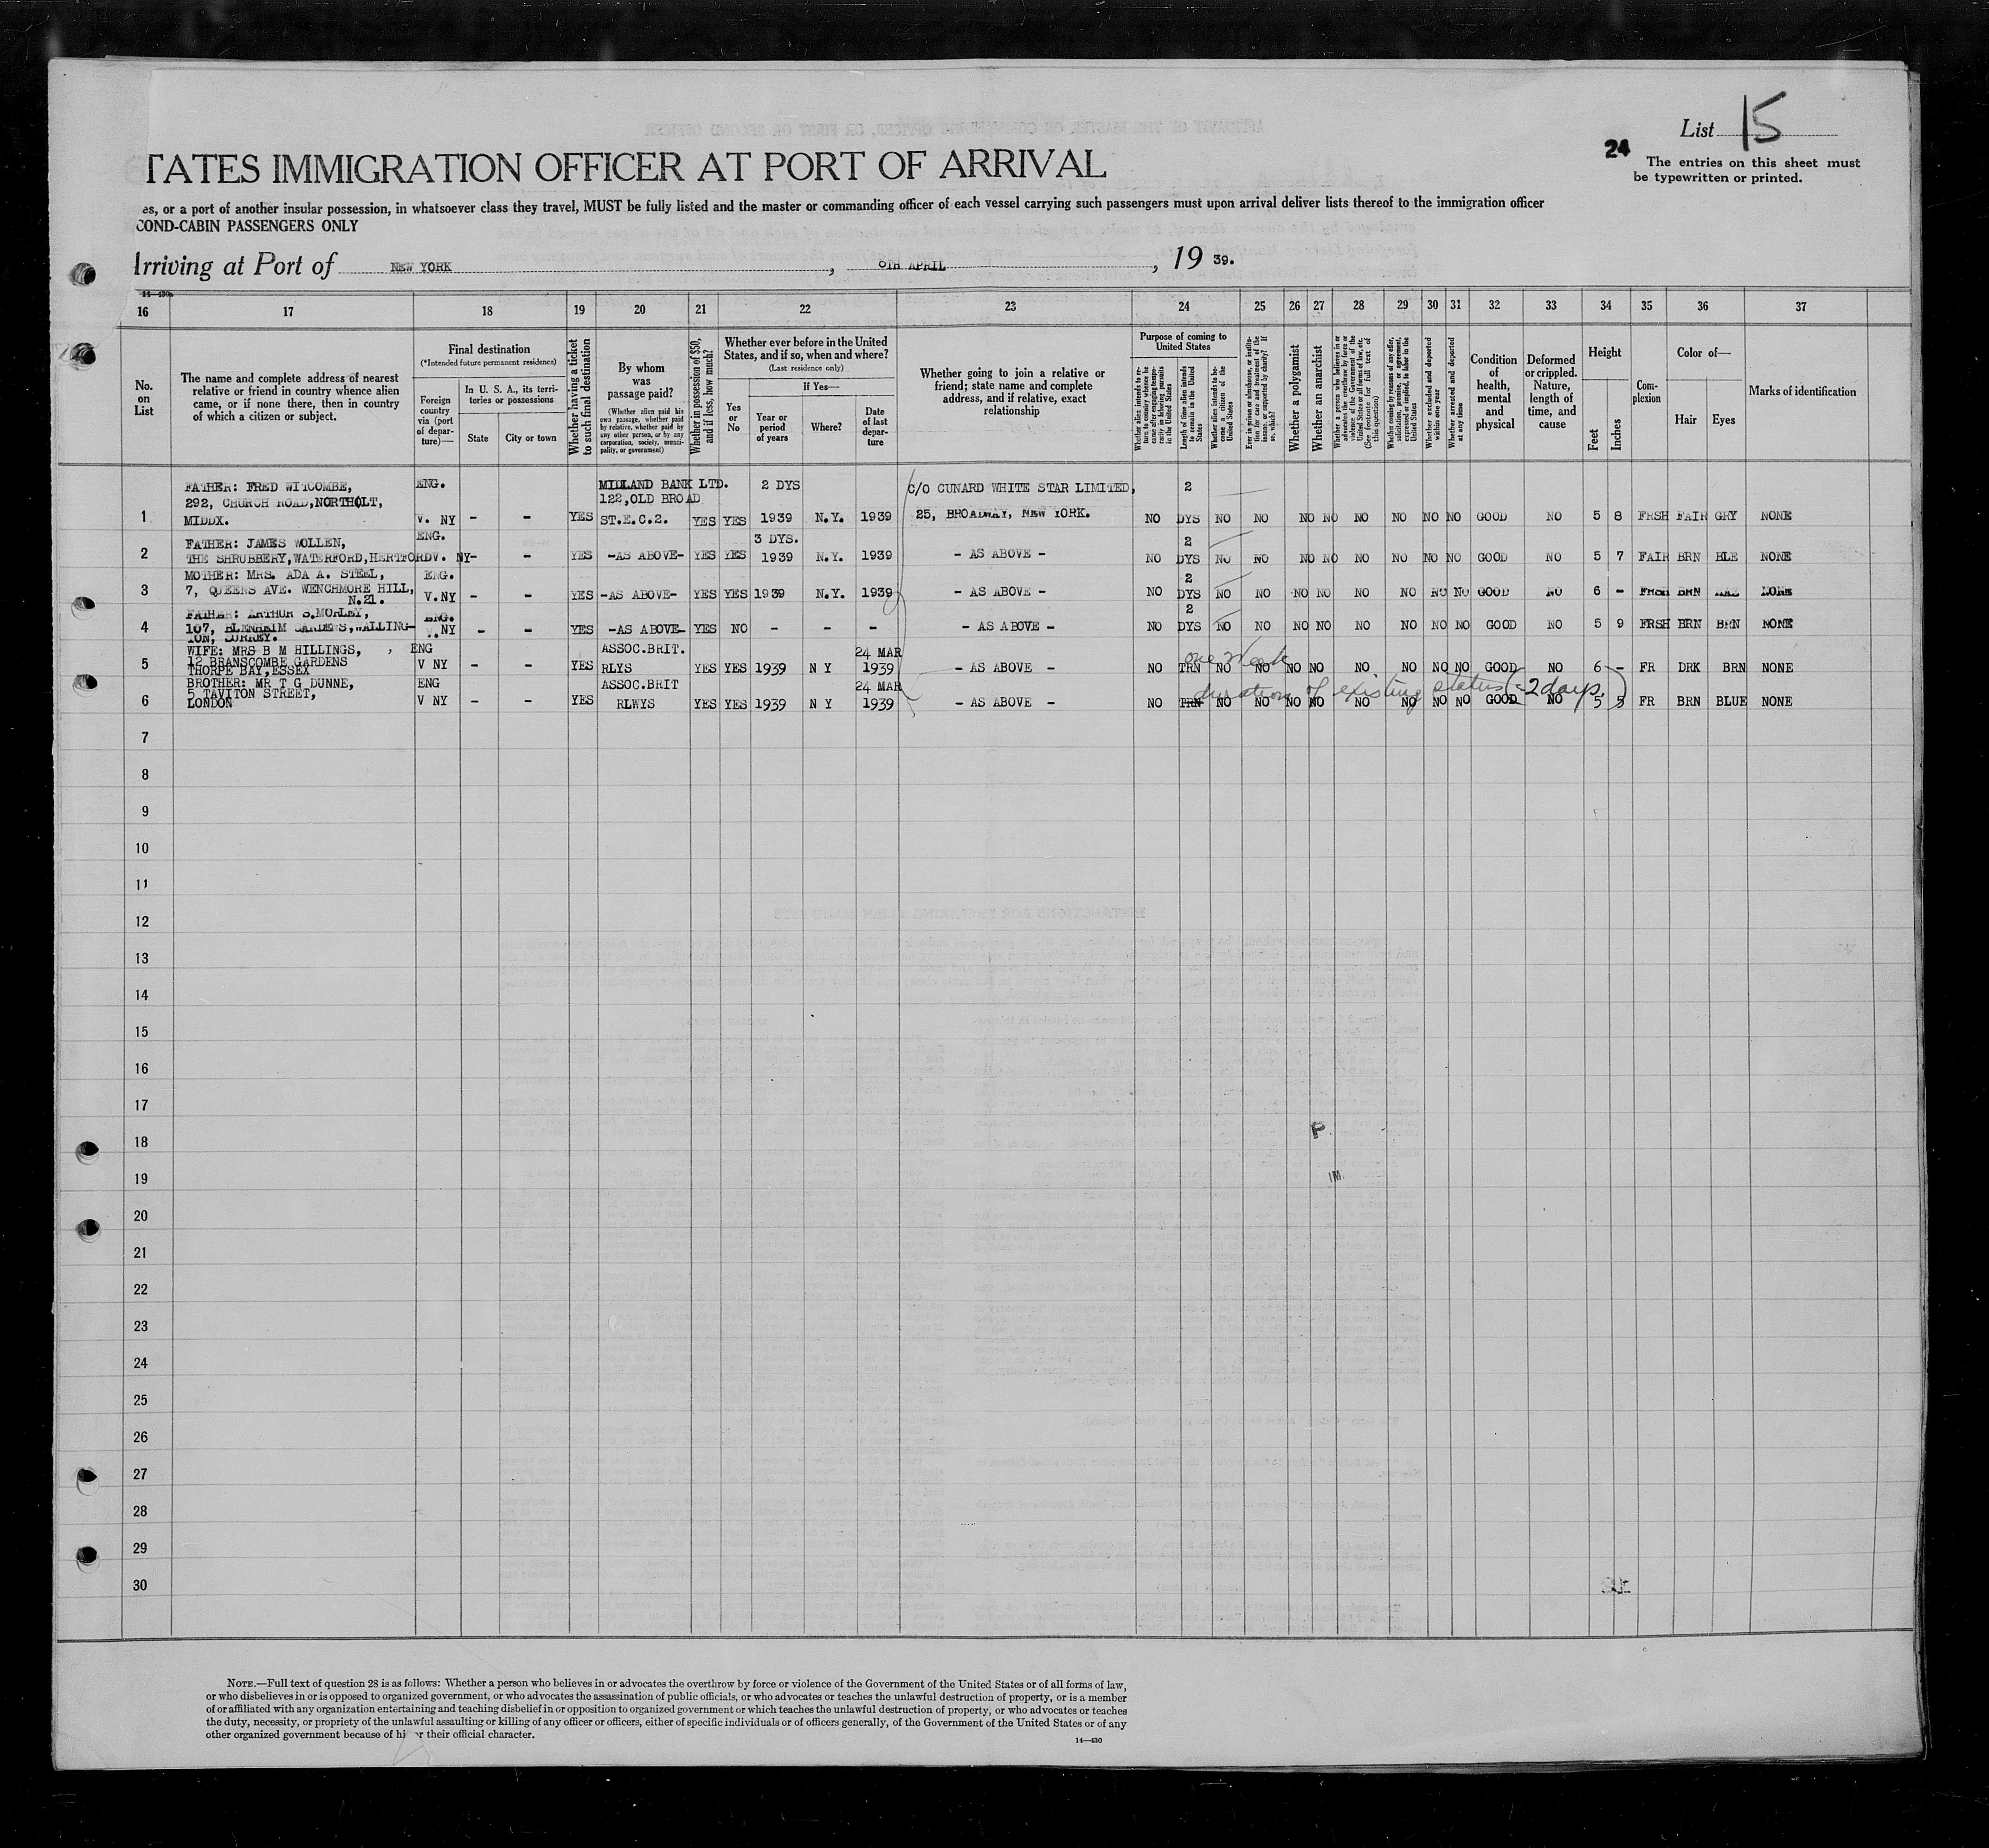 List 15
24
The entries on this sheet must
be typewritten or printed.
TATES IMMIGRATION OFFICER AT PORT OF ARRIVAL
es, or a port of another insular possession, in whatsoever class they travel, MUST be fully listed and the master or commanding officer of each vessel carrying such passengers must upon arrival deliver lists thereof to the immigration officer
COND-CABIN PASSENGERS ONLY
rriving at Port of NEW YORK , 8TH APRIL , 19 39.
14—430
16 17 18 19 20 21 22 23 24 25 26 27 28 29 30 31 32 33 34 35 36 37
No. on List
The name and complete address of nearest
relative or friend in country whence alien
came, or if none there, then in country
of which a citizen or subject.
Final destination
(*Intended future permanent residence)
Foreign country via (port of departure)—
In U. S. A., its territories or possessions
State
City or town
Whether having a ticket to such final destination
By whom was passage paid?
(Whether alien paid his own passage, whether paid by relative, whether paid by any other person, or by any corporation, society, municipality, or government)
Whether in possession of $50, and if less, how much?
Whether ever before in the United
States, and if so, when and where?
(Last residence only)
Yes or No
If Yes—
Year or period of years
Where?
Date of last departure
Whether going to join a relative or
friend; state name and complete
address, and if relative, exact
relationship
Purpose of coming to United States
Whether alien intends to return to country whence he came after engaging temporarily in laboring pursuits in the United States
Length of time alien intends to remain in the United States
Whether alien intends to become a citizen of the United States
Ever in prison or almshouse, or institution for care and treatment of the insane, or supported by charity? If so, which?
Whether a polygamist
Whether an anarchist
Whether a person who believes in or advocates the overthrow by force or violence of the Government of the United States or all forms of law, etc. (See footnote for full text of this question)
Whether coming by reasons of any offer, solicitation, promise, or agreement, expressed or implied, to labor in the United States
Whether excluded and deported within one year
Whether arrested and deported at any time
Condition of health, mental and physical
Deformed or crippled. Nature, length of time, and cause
Height
Feet
Inches
Complexion
Color of—
Hair
Eyes
Marks of identification
FATHER: FRED WITCOMBE, ENG. MIDLAND BANK LTD. 2 DYS C/O CUNARD WHITE STAR LIMITED, 2
292, CHURCH ROAD, NORTHOLT, 122, OLD BROAD
1 MIDDX. V. NY - - YES ST.E.C.2. YES YES 1939 N.Y. 1939 25, BROADWAY, NEW YORK. NO DYS NO NO NO NO NO NO NO NO GOOD NO 5 8 FRSH FAIR GRY NONE
FATHER: JAMES WOLLEN, ENG. 3 DYS. 2
2 THE SHRUBBERY, WATERFORD, HERTFORD V. NY - - YES -AS ABOVE- YES YES 1939 N.Y. 1939 - AS ABOVE - NO DYS NO NO NO NO NO NO NO NO GOOD NO 5 7 FAIR BRN BLE NONE
MOTHER: MRS. ADA A. STEEL, ENG. 2
3 7, QUEENS AVE. WENCHMORE HILL, V.NY - - YES -AS ABOVE- YES YES 1939 N.Y. 1939 - AS ABOVE - NO DYS NO NO NO NO NO NO NO NO GOOD NO 6 - FRSH BRN NONE
N.21.
FATHER: ARTHUR S. MORLEY, ENG. 2
4 107, BLENHEIM GARDENS, WALLING- V.NY - - YES -AS ABOVE- YES NO - - - - AS ABOVE - NO DYS NO NO NO NO NO NO NO NO GOOD NO 5 9 FRSH BRN BRN NONE
TON, SURREY.
WIFE: MRS B M HILLINGS, , ENG ASSOC.BRIT. 24 MAR one week
5 12 BRANSCOMBE GARDENS V NY - - YES RLYS YES YES 1939 N Y 1939 - AS ABOVE - NO TRN NO NO NO NO NO NO NO NO GOOD NO 6 - FR DRK BRN NONE
THORPE BAY, ESSEX
BROTHER: MR T G DUNNE, ENG ASSOC.BRIT 24 MAR duration of existing status (-2 days.)
5 TAVITON STREET,
6 LONDON V NY - - YES RLWYS YES YES 1939 N Y 1939 - AS ABOVE - NO TRN NO NO NO NO NO NO NO NO GOOD NO 5 5 FR BRN BLUE NONE
7
8
9
10
11
12
13
14
15
16
17
18 P
19 IM
20
21
22
23
24
25
26
27
28
29
30
NOTE.—Full text of question 28 is as follows: Whether a person who believes in or advocates the overthrow by force or violence of the Government of the United States or of all forms of law,
or who disbelieves in or is opposed to organized government, or who advocates the assassination of public officials, or who advocates or teaches the unlawful destruction of property, or is a member
of or affiliated with any organization entertaining and teaching disbelief in or opposition to organized government or which teaches the unlawful destruction of property, or who advocates or teaches
the duty, necessity, or propriety of the unlawful assaulting or killing of any officer or officers, either of specific individuals or of officers generally, of the Government of the United States or of any
other organized government because of hi r their official character.
14—430